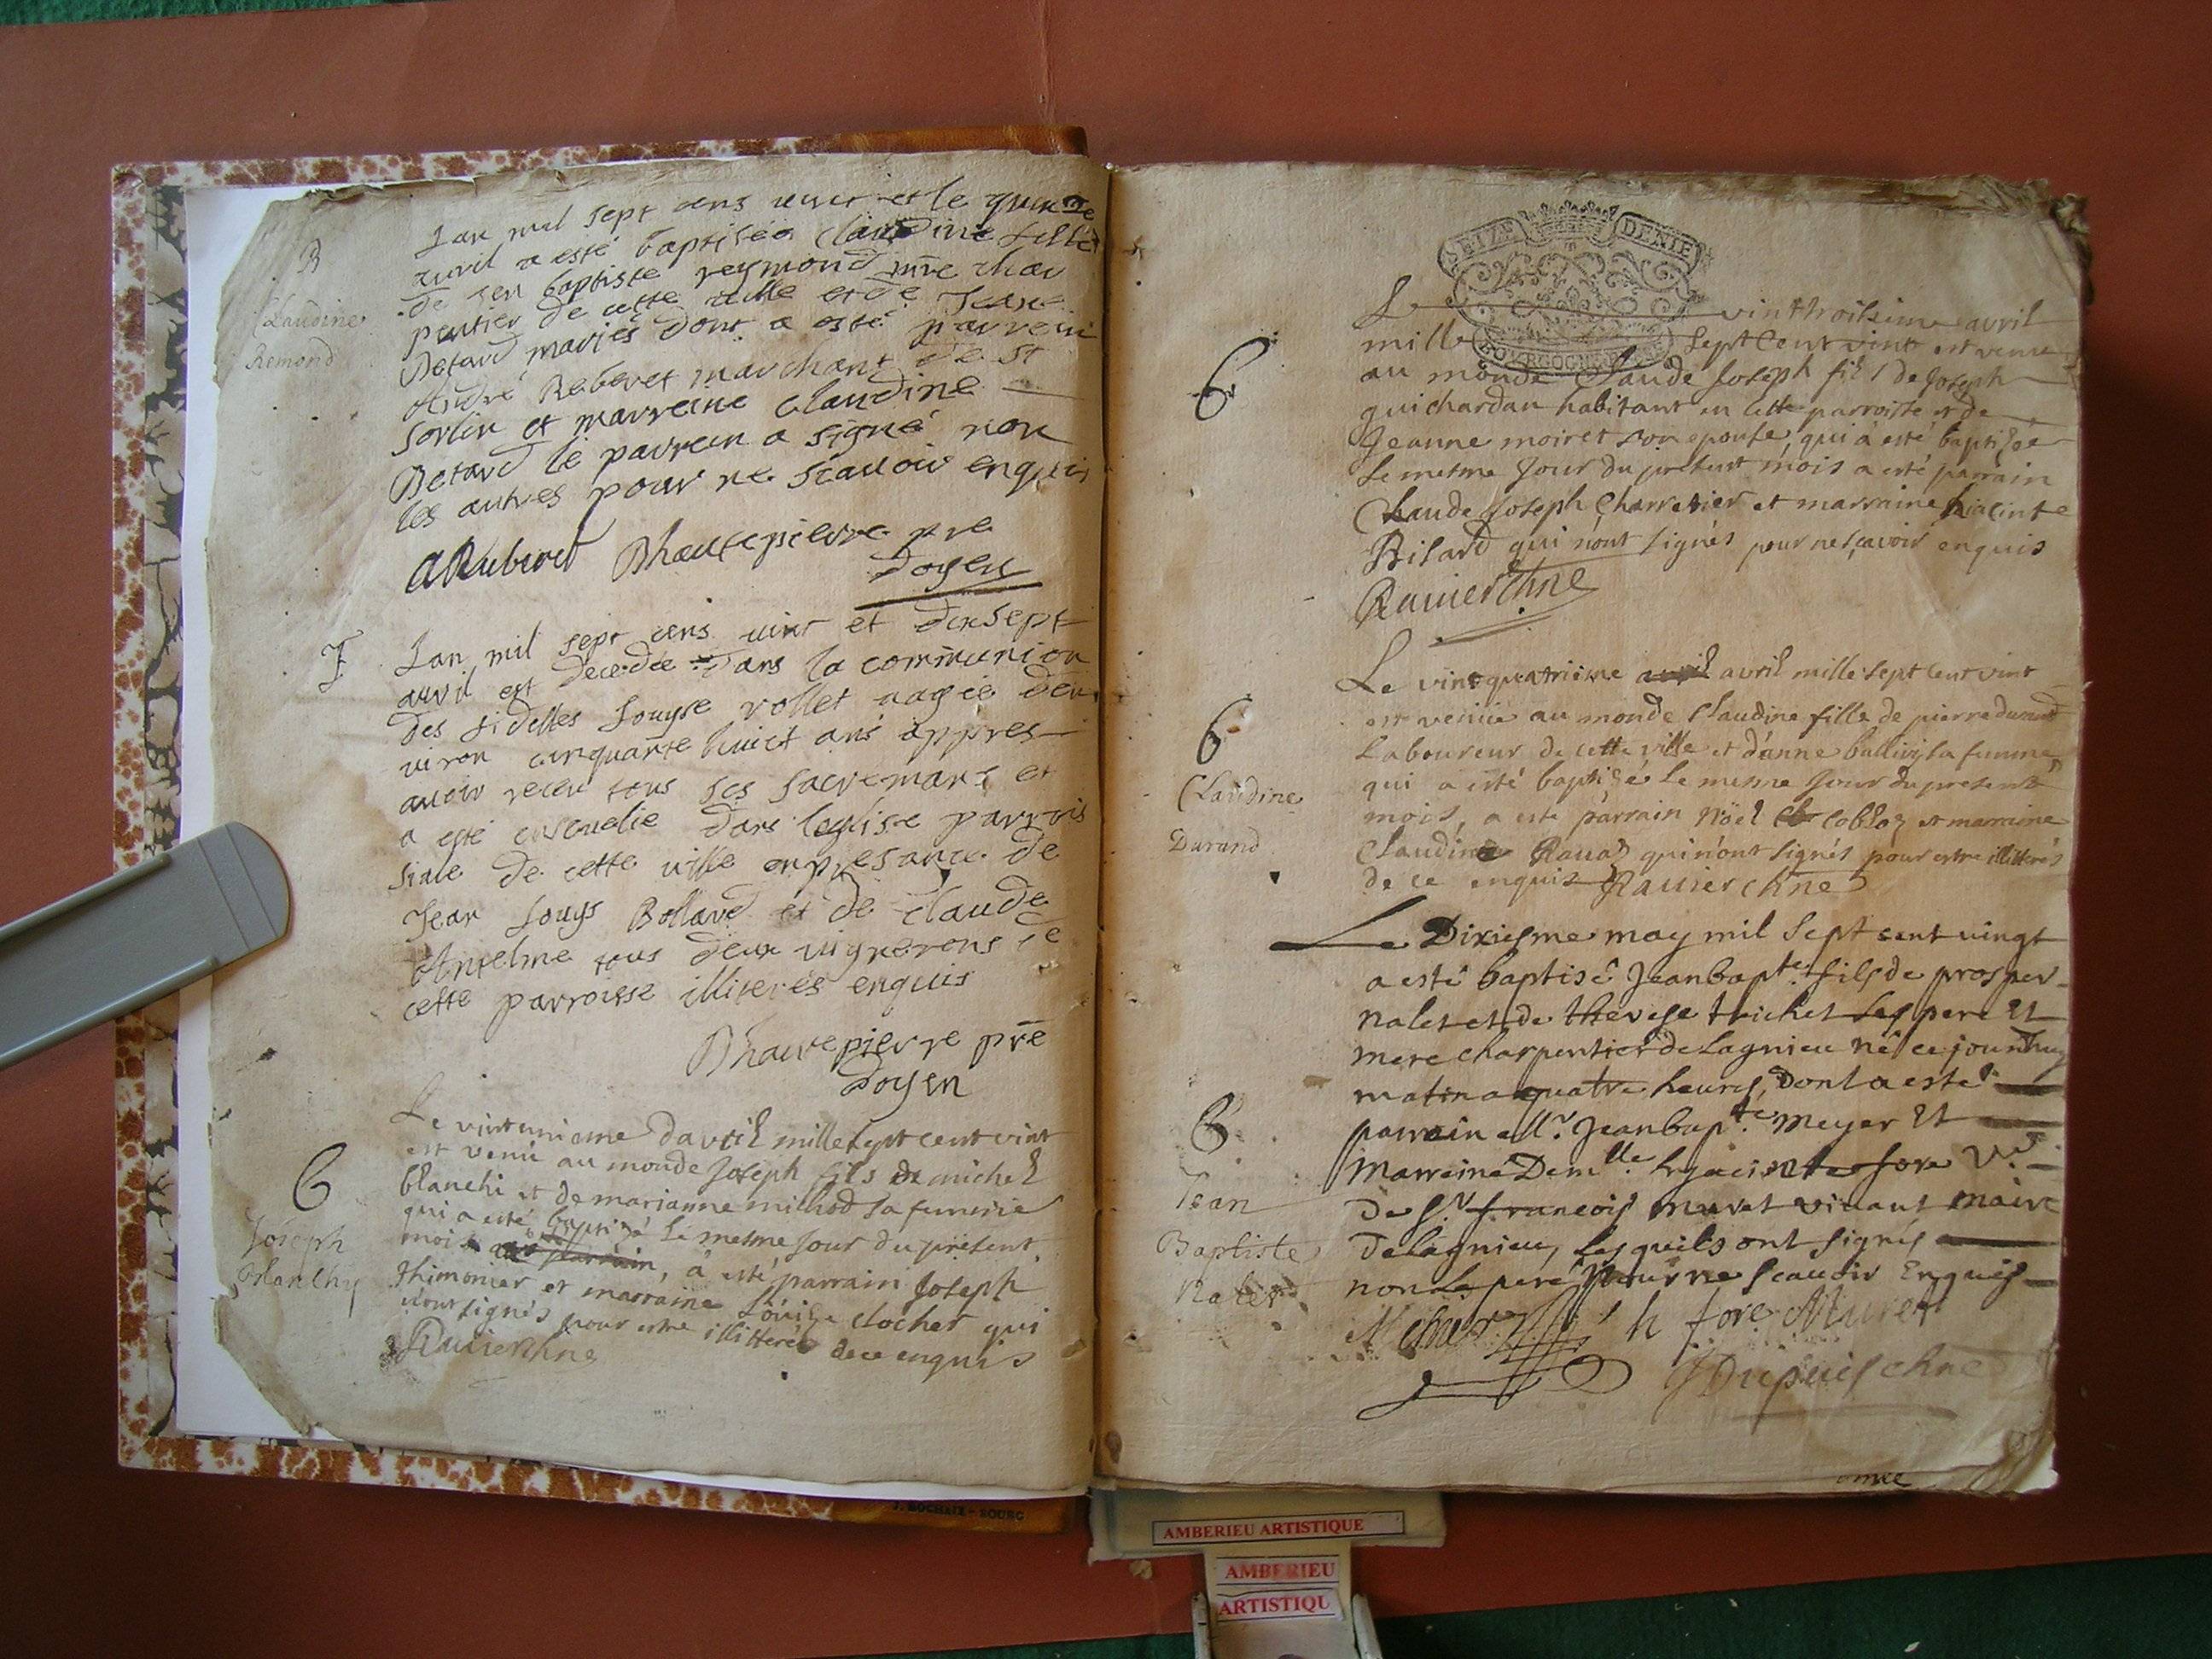 B
Claudine
Remond
Lan mil sept cens vint et le quinze
avril a esté baptiséé claudine fille
de feu baptiste reymond mre char
pentier de cette ville et de Jeane
Betard mariés dont a esté parrein
André Reberet marchant de St
Sorlin et marreine claudine
Betard le parrein a signé non
les autres pour ne scauoir enquis
ARuberet Dhautepierre pre
Doyen
F
Lan mil sept cens vint et dixsept
avril est decedée dans la communion
des fidelles Louyse rollet aagée den
viron cinquante huict ans appres
avoir receu tous ses sacremans et
a esté ensevelie dans leglise parrois
siale de cette ville en presance de
Jean Louys Bollard et de claude
Antelme tous deux vignerons de
cette parroisse illiterés enquis
Dhautepierre pre
Doyen
6
Joseph
Blanchy
Le vintunieme davril mille sept cent vint
est venu au monde Joseph fils de michel
blanchi et de marianne milhod sa femme
qui a esté baptizé le mesme jour du present
mois, a esté parrain Joseph
thimonier et marraine Louise clochet qui
n'ont signés pour estre illitterés de ce enquis
Ravier chne
SEIZE DENIE
BOURGOGNE
6
Le vinthroisieme avril
mille sept Cent vint est venu
au monde Claude Joseph fils de Joseph
guichardan habitant en cette parroisse et de
Jeanne moiret son epouse, qui a esté baptizée
le mesme jour du present mois a esté parrain
Claude Joseph Charretier et marraine hiacinte
Bilard qui n'ont signés pour ne sçavoir enquis
Ravier Chne
6
Claudine
Durand
Le vint quatriime avril mille sept cent vint
est veniie au monde Claudine fille de pierre durand
Laboureur de cette ville et d'anne ballivy sa femme,
qui a esté baptizé le mesme jour du present
mois, a esté parrain Nöel cobloz et marraine
Claudine Ravaz qui n'ont signés pour estre illitterés
de ce enquis Ravier chne
6
Jean
Baptiste
Nalet
Le Dixiesme may mil Sept cent vingt
a esté baptisé Jeanbapte. fils de prosper
nalet et de therese trichet Ses pere Et
mere charpentier de Lagnieu né ce jourdhuy
matin a quatre heures, Dont a esté
parrain Mr. Jeanbapte. Meyer Et
Marraine Demlle. hyacinte fore Ve
De Sr. francois muret vivant maire
de Lagnieu, Lesquels ont signés
non Le pere pour ne Scauoir Enquis
Meyer h fore Muret
Dupuis chne
J. ROCHAIX - BOURG
AMBERIEU ARTISTIQUE
AMBERIEU
ARTISTIQU